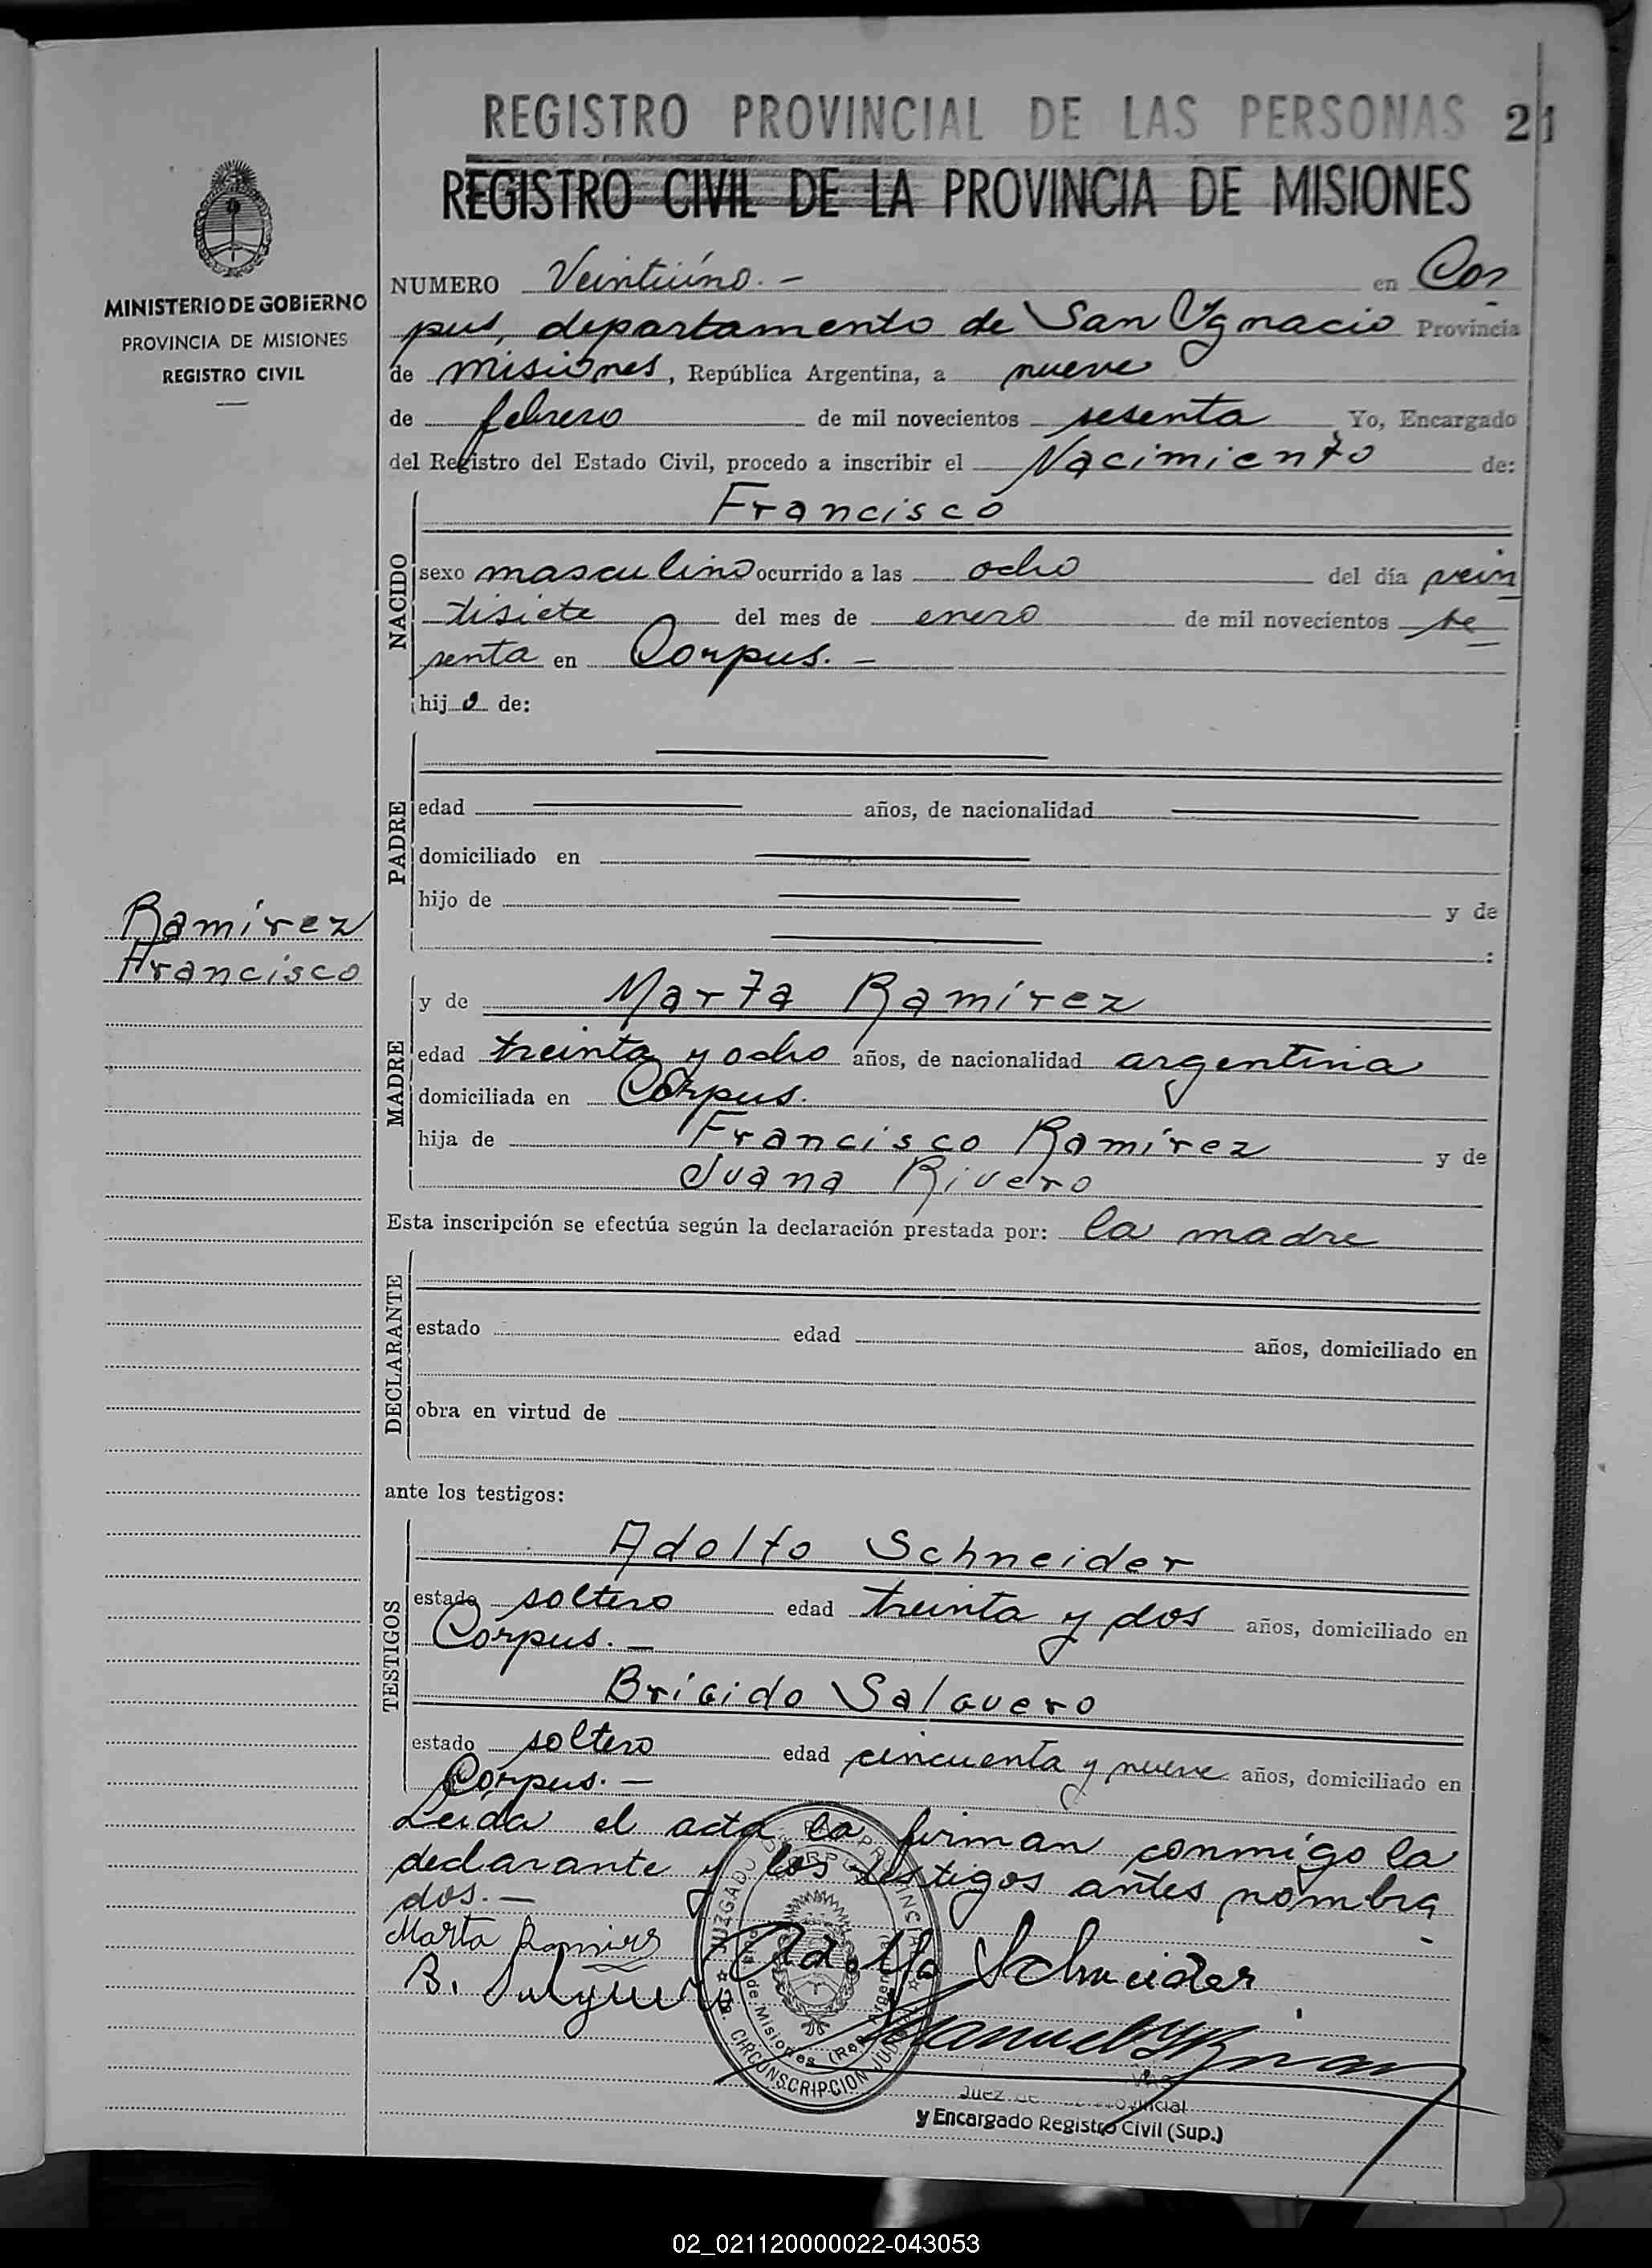 REGISTRO PROVINCIAL DE LAS PERSONAS 21
REGISTRO CIVIL DE LA PROVINCIA DE MISIONES
MINISTERIO DE GOBIERNO
PROVINCIA DE MISIONES
REGISTRO CIVIL
NUMERO Veintiúno.- en Cor
pus, departamento de San Ygnacio Provincia
de misiones, República Argentina, a nueve
de febrero de mil novecientos sesenta Yo, Encargado
del Registro del Estado Civil, procedo a inscribir el Nacimiento de:
NACIDO
Francisco
sexo masculino ocurrido a las ocho del día vein
tisiete del mes de enero de mil novecientos se
senta en Corpus.-
hijo de:
PADRE
edad años, de nacionalidad
domiciliado en
hijo de y de
:
Ramirez
Francisco
MADRE
y de Marta Ramírez
edad treinta y ocho años, de nacionalidad argentina
domiciliada en Corpus.
hija de Francisco Ramírez y de
Juana Rivero
Esta inscripción se efectúa según la declaración prestada por: la madre
DECLARANTE
estado edad años, domiciliado en
obra en virtud de
ante los testigos:
TESTIGOS
Adolfo Schneider
estado soltero edad treinta y dos años, domiciliado en
Corpus.-
Brigido Salguero
estado soltero edad cincuenta y nueve años, domiciliado en
Corpus.-
Leída el acta la firman conmigo la
declarante y los testigos antes nombra
dos.-
Marta Ramires
Adolfo Schneider
B. Salguero
JUZGADO DE PAZ PROVINCIAL
CORPUS
de Misiones (Rep. Argen
CIRCUNSCRIPCION JUD
Juez de
y Encargado Registro Civil (Sup.)
02_021120000022-043053